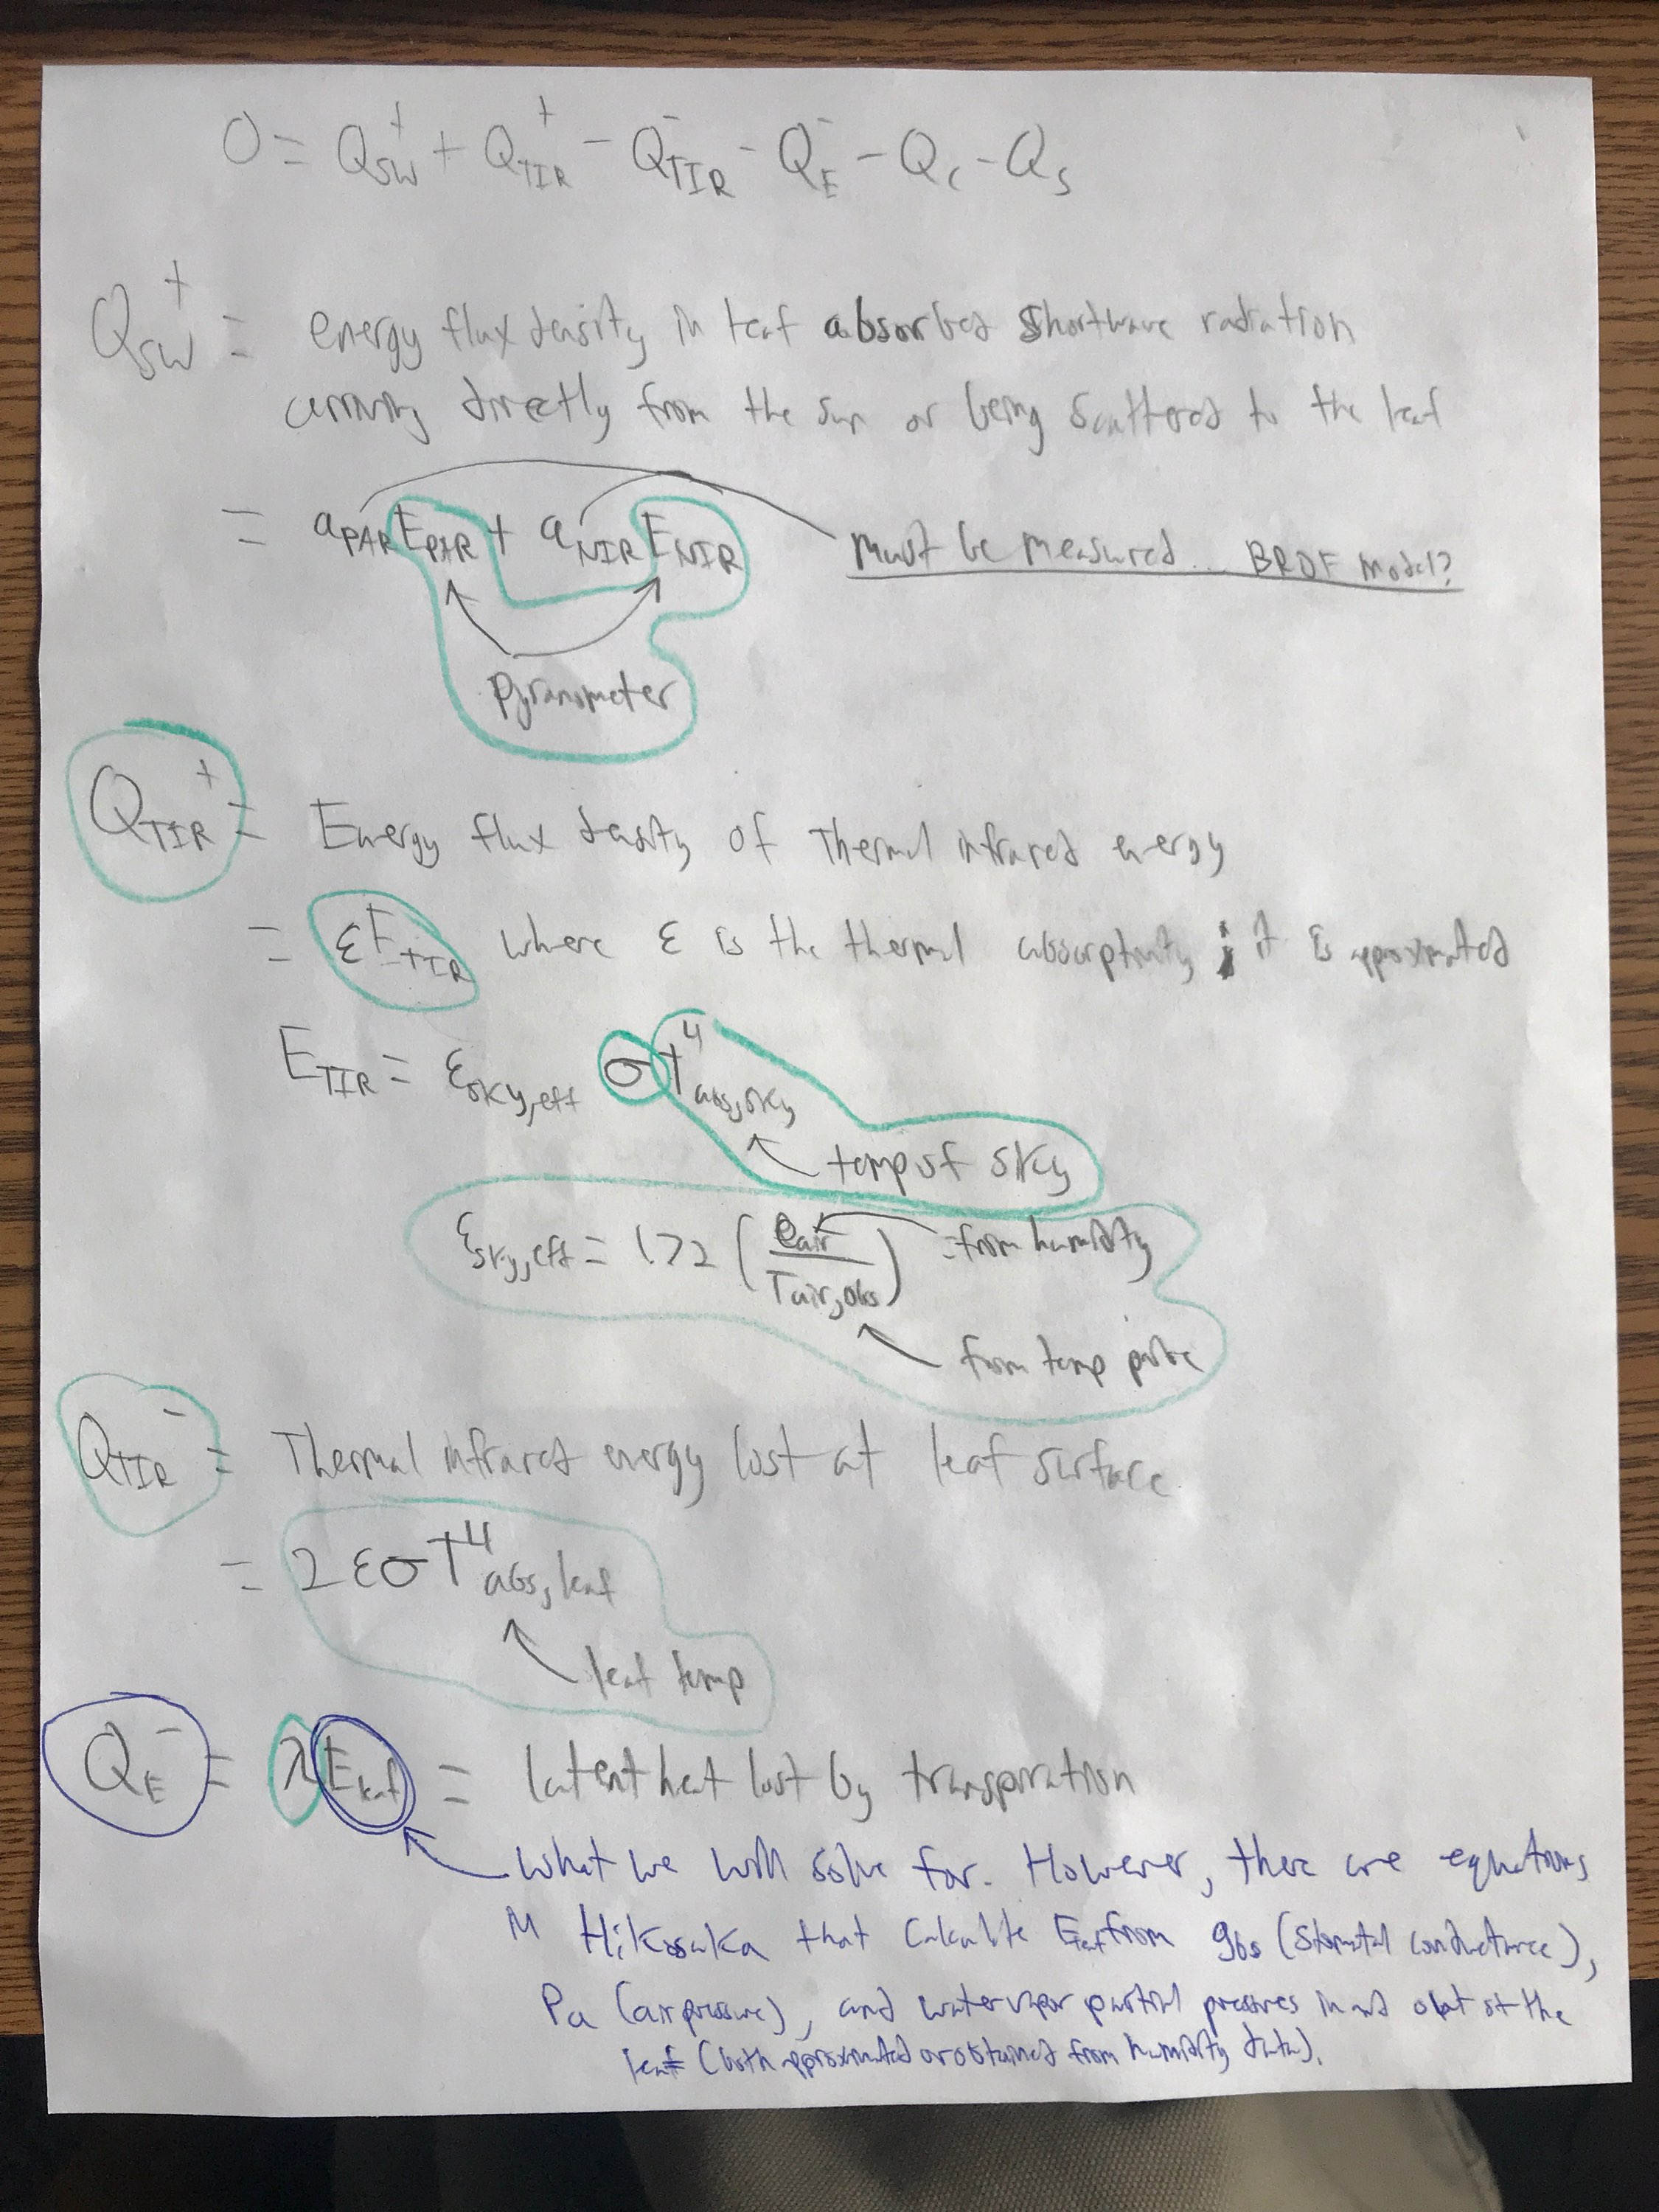 0 = Q_SW^+ + Q_TIR^+ - Q_TIR^- - Q_E^- - Q_C - Q_S
Q_SW^+ = energy flux density in leaf absorbed shortwave radiation
arriving directly from the sun or being scattered to the leaf
= a_PAR E_PAR + a_NIR E_NIR
Must be measured... BRDF model?
pyranometer
Q_TIR^+ = Energy flux density of Thermal infrared energy
= εE_TIR where ε is the thermal absorptivity; it is approximated
E_TIR = ε_sky,eff σT^4_abs,sky
temp of sky
ε_sky,eff = 1.72 (e_air / T_air,abs) = from humidity
from temp probe
Q_TIR^- = Thermal infrared energy lost at leaf surface
= 2εσT^4_abs,leaf
leaf temp
Q_E^- = λE_leaf = latent heat lost by transpiration
What we will solve for. However, there are equations
in Hikosaka that calculate E_leaf from g_bs (stomatal conductance),
Pa (air pressure), and water vapor partial pressures in and out of the
leaf (both approximated or obtained from humidity data).